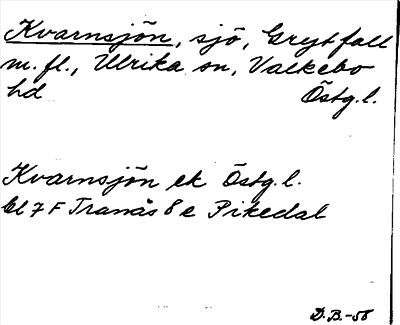 Kvarnsjön, sjö, Grytfall
m. fl., Ulrika sn, Valkebo
hd Östg. l.
Kvarnsjön ek Östg. l.
bl 7 F Tranås 8 e Pikedal
D.B.-58